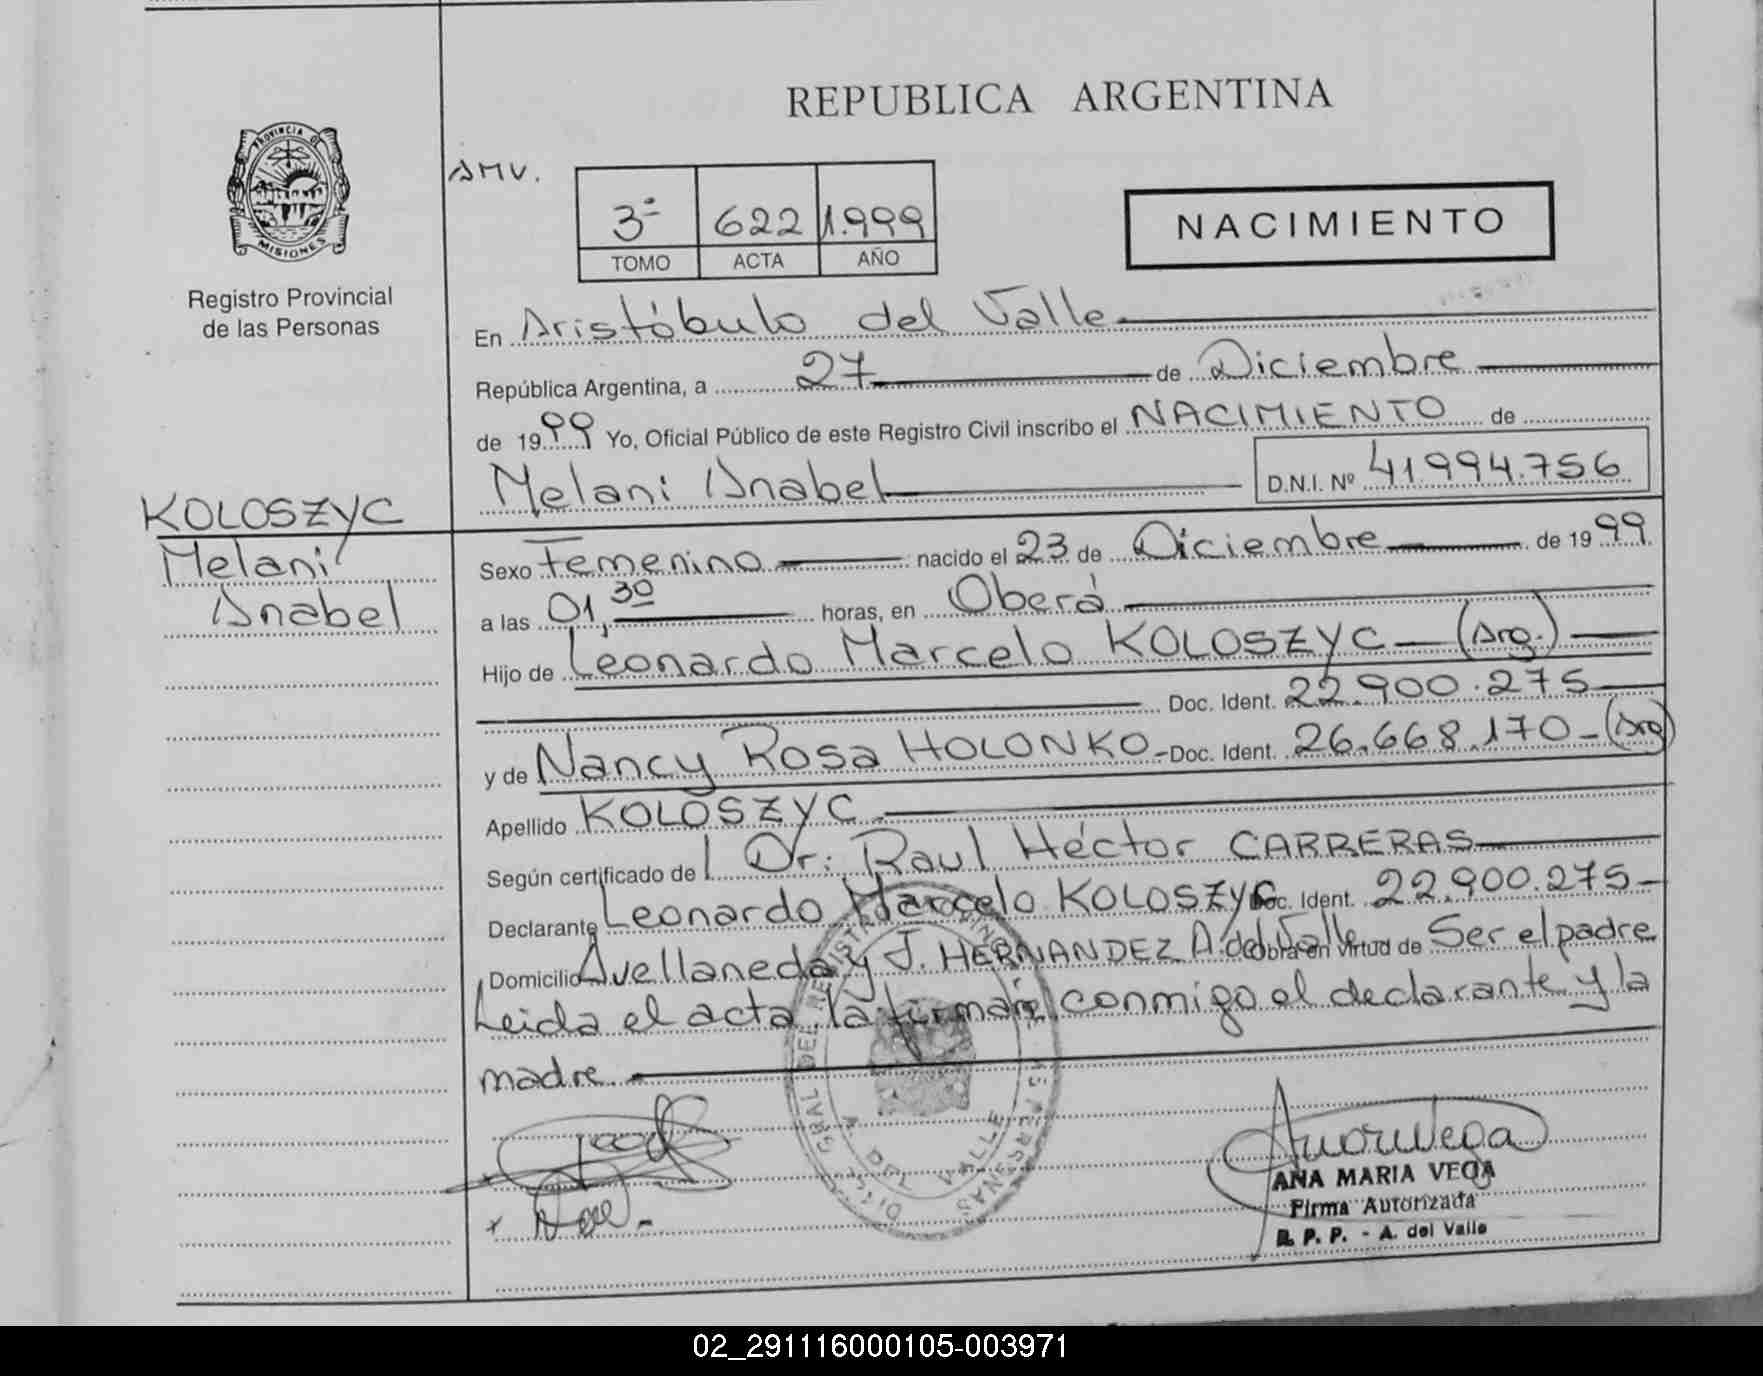 REPUBLICA ARGENTINA
PROVINCIA D
MISIONES
AMV.
3ª 622 1.999
TOMO ACTA AÑO
NACIMIENTO
Registro Provincial
de las Personas
En Aristóbulo del Valle
República Argentina, a 27 de Diciembre
de 1999 Yo, Oficial Público de este Registro Civil inscribo el NACIMIENTO de
Melani Anabel D.N.I. Nº 41994.756
KOLOSZYC
Melani
Anabel
Sexo Femenino nacido el 23 de Diciembre de 1999
a las 01,30 horas, en Oberá
Hijo de Leonardo Marcelo KOLOSZYC (Arg.)
Doc. Ident. 22.900.275
y de Nancy Rosa HOLONKO - Doc. Ident. 26.668.170 - (Arg)
Apellido KOLOSZYC
Según certificado de Dr: Raul Héctor CARRERAS
Declarante Leonardo Marcelo KOLOSZYC Doc. Ident. 22.900.275
Domicilio Avellaneda y J. HERNANDEZ A. del Valle obra en virtud de Ser el padre
Leida el acta, la firman conmigo el declarante y la
madre
A DEL VALLE
ANA MARIA VEGA
Firma Autorizada
R. P. P. - A. del Valle
02_291116000105-003971